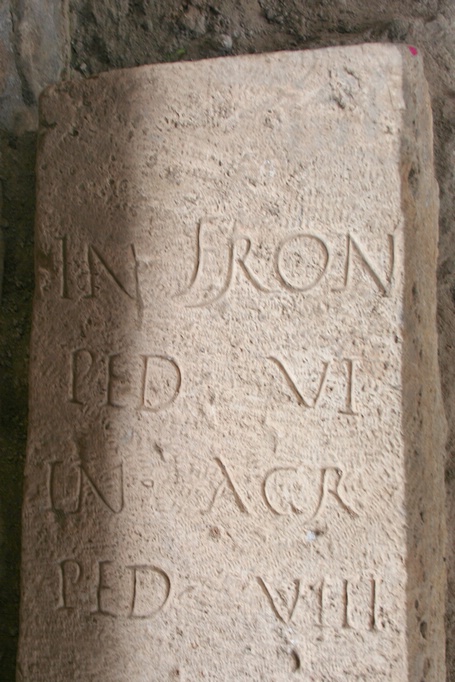 IN FRON
PED VI
IN · AGR
PED VIII